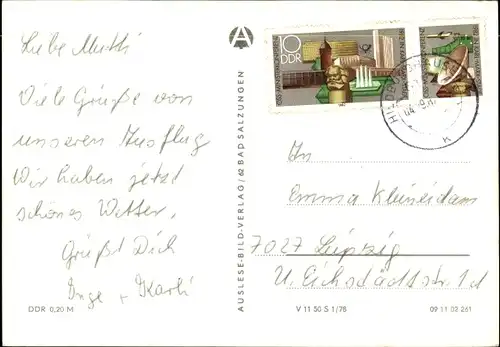 Liebe Mutti
Viele Grüße von
unseren Ausflug
Wir haben jetzt
schönes Wetter.
Grüßt Dich
Inge + Karli
DDR 0,20 M
AUSLESE-BILD-VERLAG/62 BAD SALZUNGEN
10
DDR
An
Emma Kleineidam
7027 Leipzig
U. Eichstädtstr. 1d
V 11 50 S 1/78
09 11 02 261